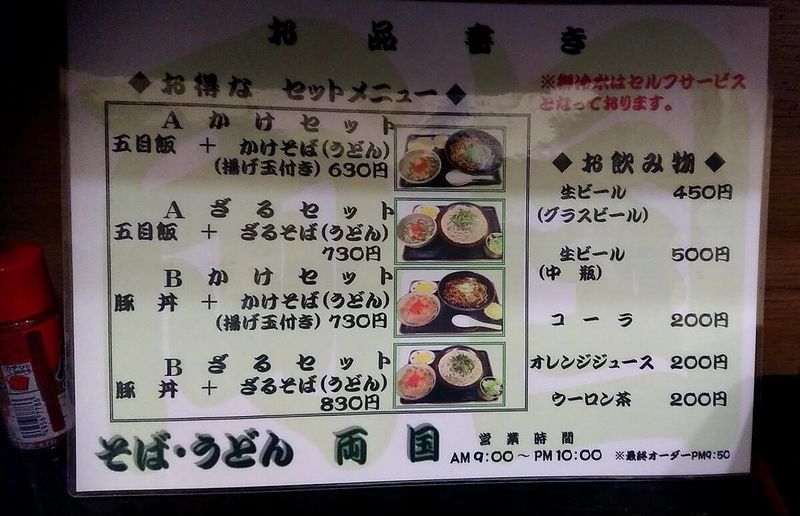 お品書き
◆お得な セットメニュー◆
Aかけセット
五目飯 + かけそば(うどん)
(揚げ玉付き) 630円
Aざるセット
五目飯 + ざるそば(うどん)
730円
Bかけセット
豚丼 + かけそば(うどん)
(揚げ玉付き) 730円
Bざるセット
豚丼 + ざるそば(うどん)
830円
※御冷水はセルフサービス
となっております。
◆お飲み物◆
生ビール 450円
(グラスビール)
生ビール 500円
(中 瓶)
コーラ 200円
オレンジジュース 200円
ウーロン茶 200円
そば・うどん 両国
営業時間
AM9:00~PM10:00 ※最終オーダーPM9:50